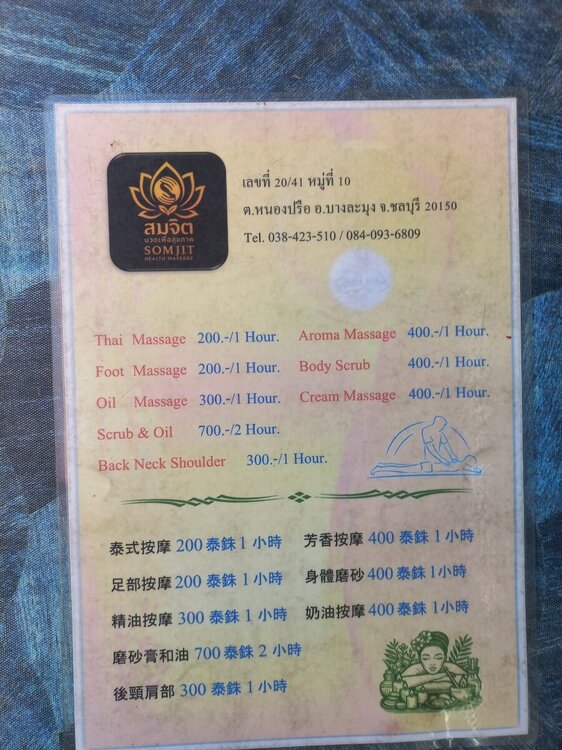 สมจิต
นวดเพื่อสุขภาพ
SOMJIT
HEALTH MASSAGE
เลขที่ 20/41 หมู่ที่ 10
ต.หนองปรือ อ.บางละมุง จ.ชลบุรี 20150
Tel. 038-423-510 / 084-093-6809
Thai Massage 200.-/1 Hour. Aroma Massage 400.-/1 Hour.
Foot Massage 200.-/1 Hour. Body Scrub 400.-/1 Hour.
Oil Massage 300.-/1 Hour. Cream Massage 400.-/1 Hour.
Scrub & Oil 700.-/2 Hour.
Back Neck Shoulder 300.-/1 Hour.
泰式按摩 200 泰銖 1 小時 芳香按摩 400 泰銖 1 小時
足部按摩 200 泰銖 1 小時 身體磨砂 400 泰銖 1小時
精油按摩 300 泰銖 1 小時 奶油按摩 400 泰銖 1小時
磨砂膏和油 700 泰銖 2 小時
後頸肩部 300 泰銖 1 小時